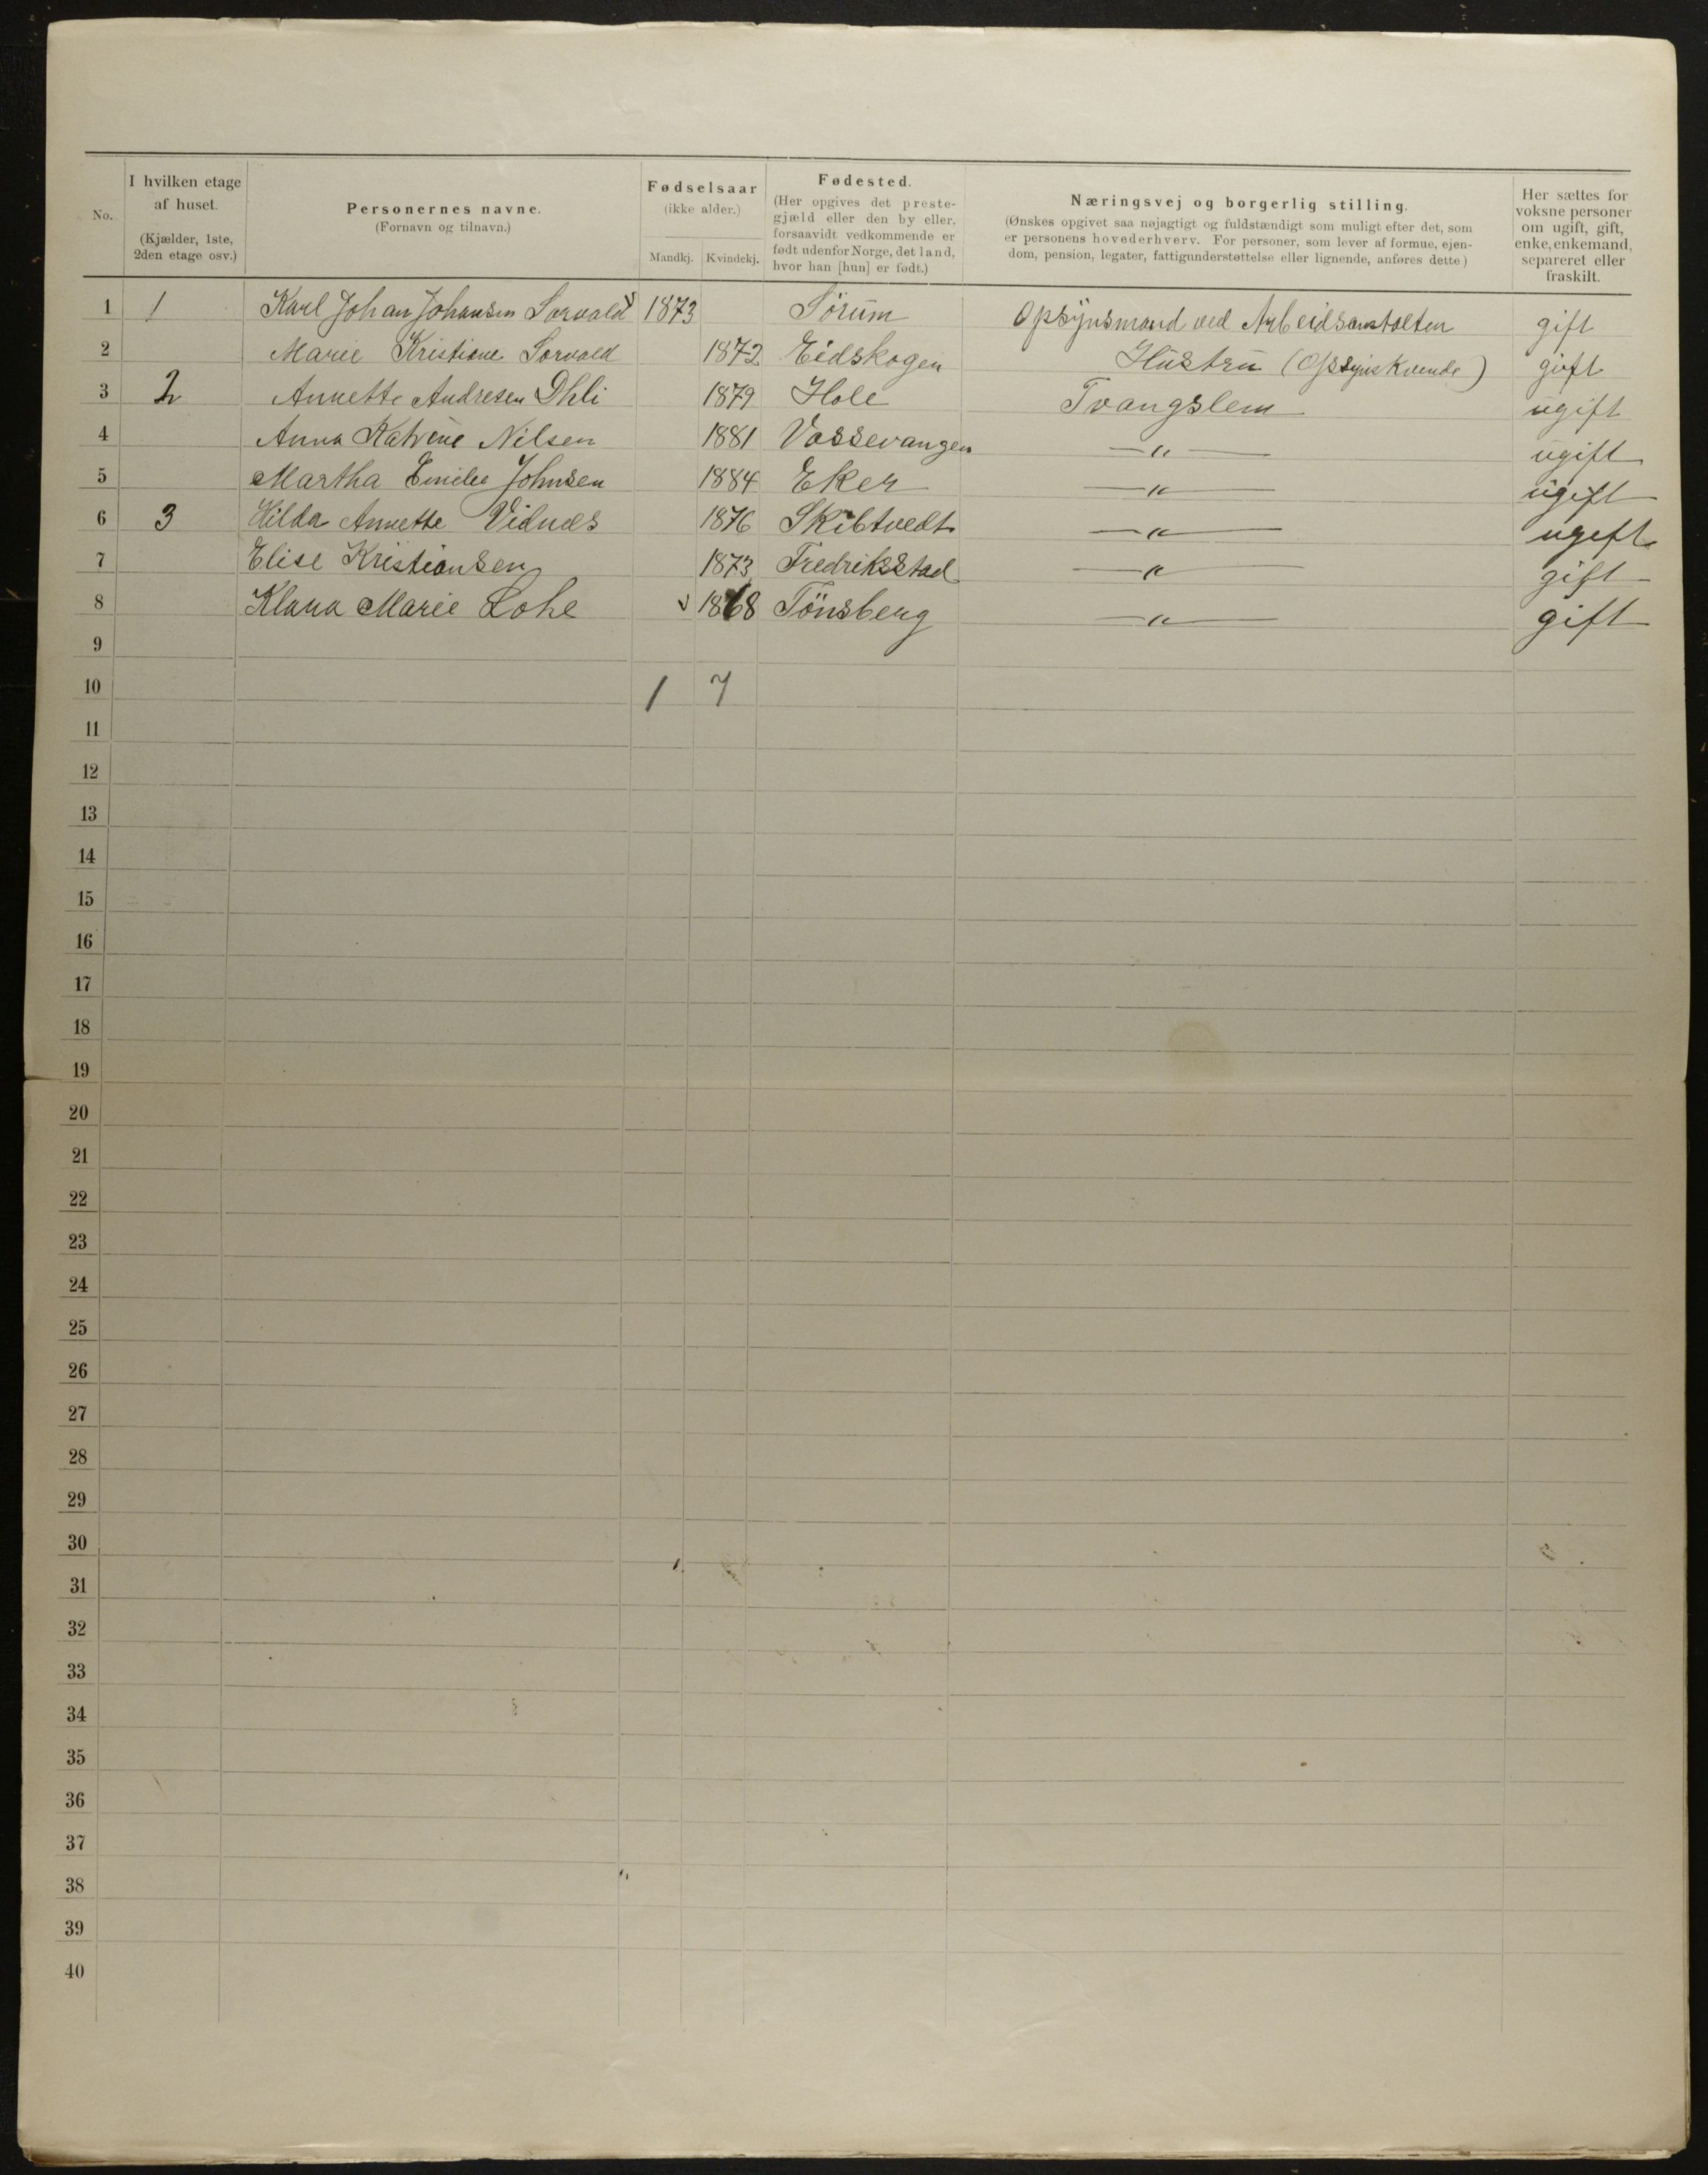 No.
I hvilken etage af huset. (Kjælder, 1ste, 2den etage osv.)
Personernes navne. (Fornavn og tilnavn.)
Fødselsaar (ikke alder.)
Mandkj. Kvindekj.
Fødested. (Her opgives det prestegjæld eller den by eller, forsaavidt vedkommende er født udenfor Norge, det land, hvor han [hun] er født.)
Næringsvej og borgerlig stilling.
(Ønskes opgivet saa nøjagtigt og fuldstændigt som muligt efter det, som
er personens hovederhverv. For personer, som lever af formue, ejen-
dom, pension, legater, fattigunderstøttelse eller lignende, anføres dette)
Her sættes for voksne personer om ugift, gift, enke, enkemand, separeret eller fraskilt.
1 1 Karl Johan Johansen Sorvald 1873 Sörum Opsynsmand ved Arbeidsanstalten gift
2 Marie Kristiane Sorvald 1872 Eidskogen Hustru (Opsynskvende) gift
3 2 Annette Andresen Dhli 1879 Hole Tvangslem ugift
4 Anna Katrine Nilsen 1881 Vossevangen —"— ugift
5 Martha Emilie Johnsen 1884 Eker —"— ugift
6 3 Hilda Annette Vidnes 1876 Skibtvedt —"— ugift
7 Elise Kristiansen 1873 Fredriksstad —"— gift
8 Klara Marie Lohe 1868 Tönsberg —"— gift
9
10 1 7
11
12
13
14
15
16
17
18
19
20
21
22
23
24
25
26
27
28
29
30
31
32
33
34
35
36
37
38
39
40